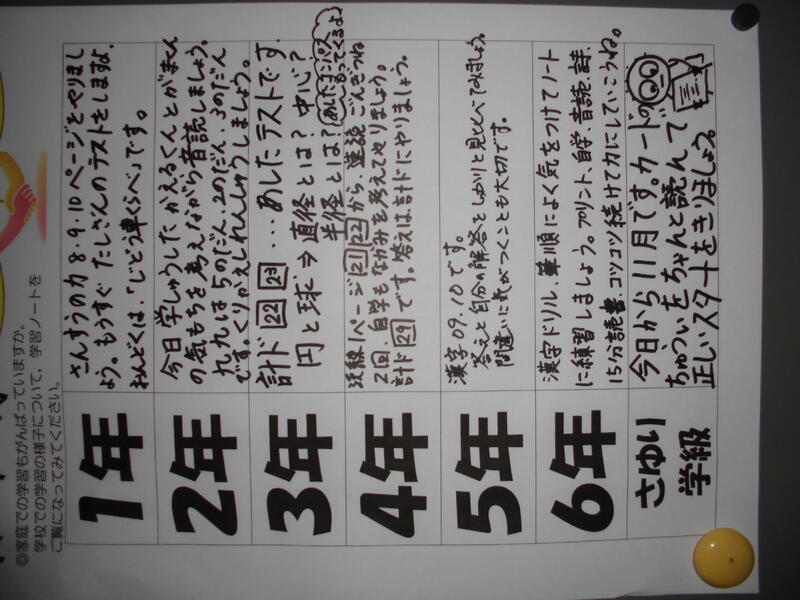 ◎家庭での学習もがんばっていますか。
学校での学習の様子について、学習ノートを
ご覧になってみてください。
1年
さんすうの力 8・9・10 ページをやりまし
ょう。もうすぐ たしざんの テストをしますよ。
おんどくは、「じどう車くらべ」です。
2年
今日 学しゅうした かえるくんとがまくん
の気もちを 考えながら音読しましょう。
れん九は 5のだん、2のだん、3のだん
です。くりかえしれんしゅうしましょう。
3年
計ド 22 23 … あしたテストです。
円と球 ⇒ 直径とは? 中心?
半径とは?
あしたコンパス
もってくるよ
4年
1ページ 21 22 から、速読 ごんぎつね
2回、自学もなかみを考えてやりましょう。
計ド 29 です。答えは計ドにやりましょう。
5年
漢字 09.10 です。
答えと自分の解答としっかりと見くらべてみましょう。
間違いに気がつくことも大切です。
6年
漢字ドリル、筆順によく気をつけてノート
に練習しましょう。プリント、自学、音読、詩
15分読書 コツコツ続けて力にしていこうね。
さゆり
学級
今日から11月です。カードの
ちゅういをちゃんと読んで
正しいスタートをきりましょう。